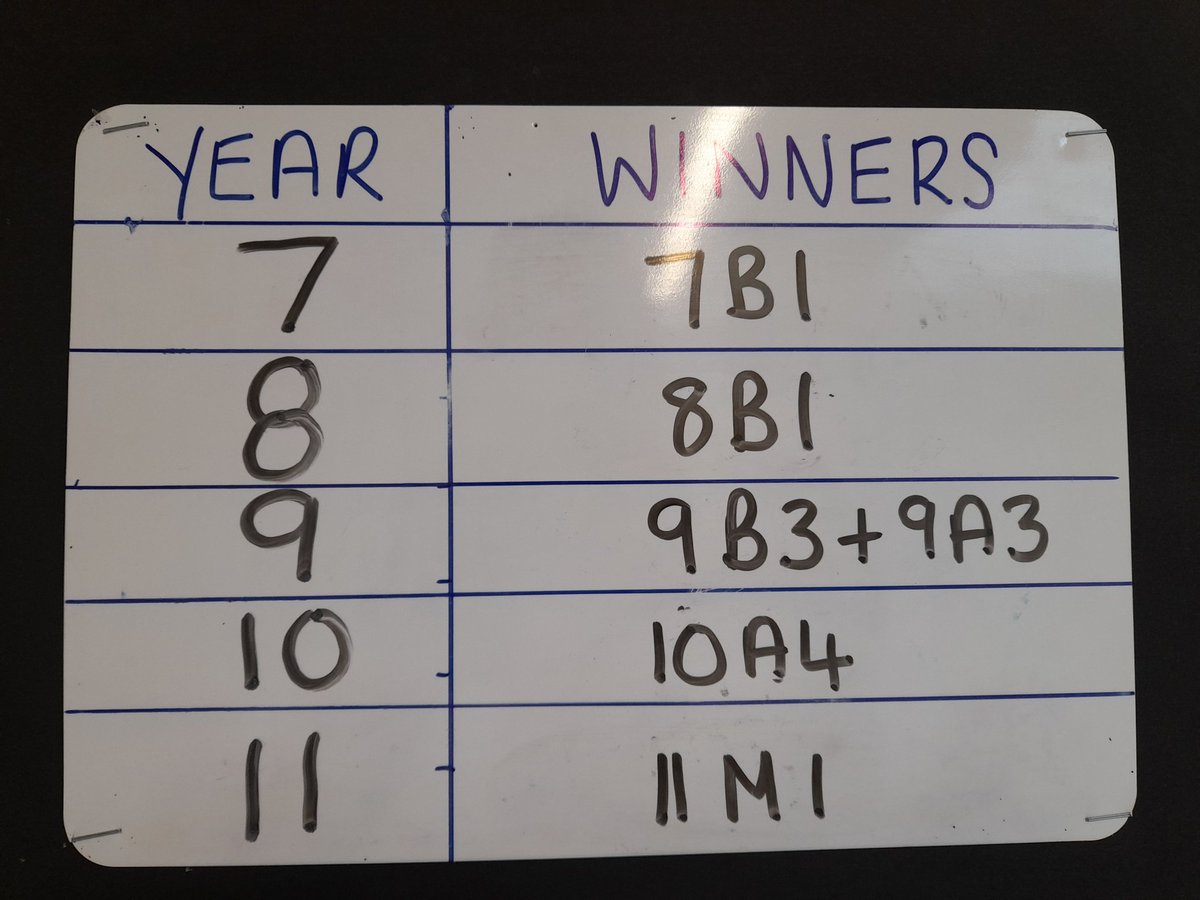 YEAR WINNERS
7 7B1
8 8B1
9 9B3+9A3
10 10A4
11 11M1